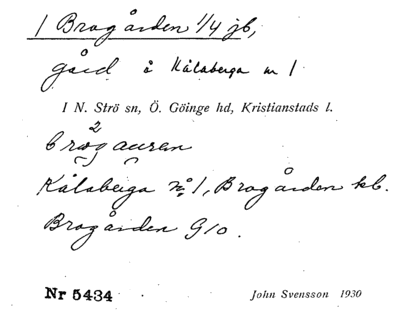 1 Brogården 1/4 jb,
gård å Kålaberga nr 1
I N. Strö sn, Ö. Göinge hd, Kristianstads l.
Kålaberga No 1, Brogården kb.
Brogården G10.
Nr 5434 John Svensson 1930